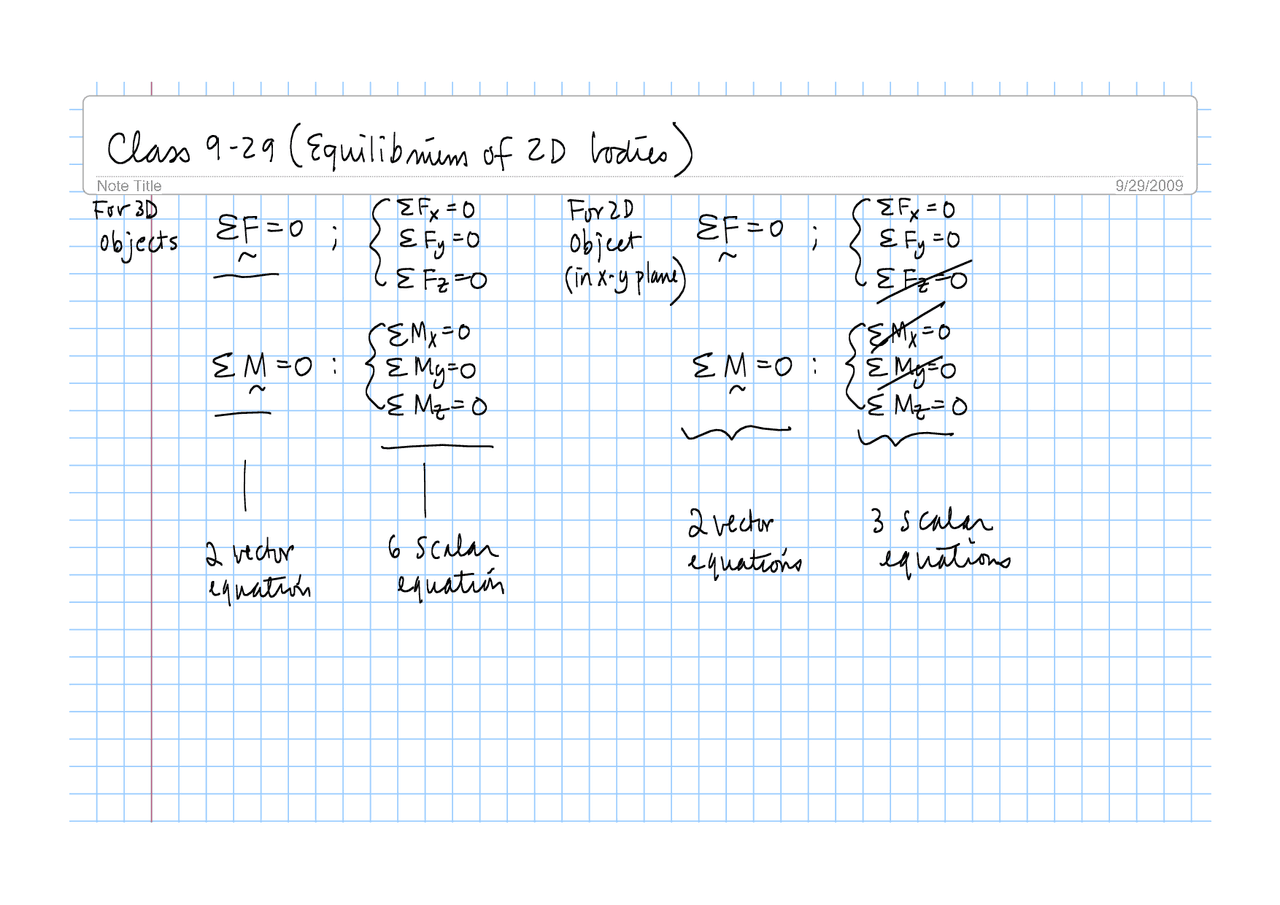 Class 9-29 (Equilibrium of 2D bodies)
Note Title
9/29/2009
For 3D
objects
ΣF̰ = 0 ;
ΣFx = 0
ΣFy = 0
ΣFz = 0
ΣM̰ = 0 :
ΣMx = 0
ΣMy = 0
ΣMz = 0
2 vector
equation
6 scalar
equation
For 2D
object
(in x-y plane)
ΣF̰ = 0 ;
ΣFx = 0
ΣFy = 0
ΣFz = 0
ΣM̰ = 0 :
ΣMx = 0
ΣMy = 0
ΣMz = 0
2 vector
equations
3 scalar
equations